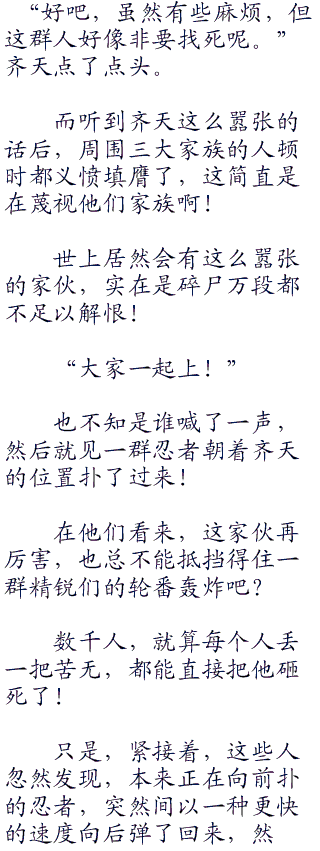 “好吧，虽然有些麻烦，但
这群人好像非要找死呢。”
齐天点了点头。
而听到齐天这么嚣张的
话后，周围三大家族的人顿
时都义愤填膺了，这简直是
在蔑视他们家族啊！
世上居然会有这么嚣张
的家伙，实在是碎尸万段都
不足以解恨！
“大家一起上！”
也不知是谁喊了一声，
然后就见一群忍者朝着齐天
的位置扑了过来！
在他们看来，这家伙再
厉害，也总不能抵挡得住一
群精锐们的轮番轰炸吧？
数千人，就算每个人丢
一把苦无，都能直接把他砸
死了！
只是，紧接着，这些人
忽然发现，本来正在向前扑
的忍者，突然间以一种更快
的速度向后弹了回来，然